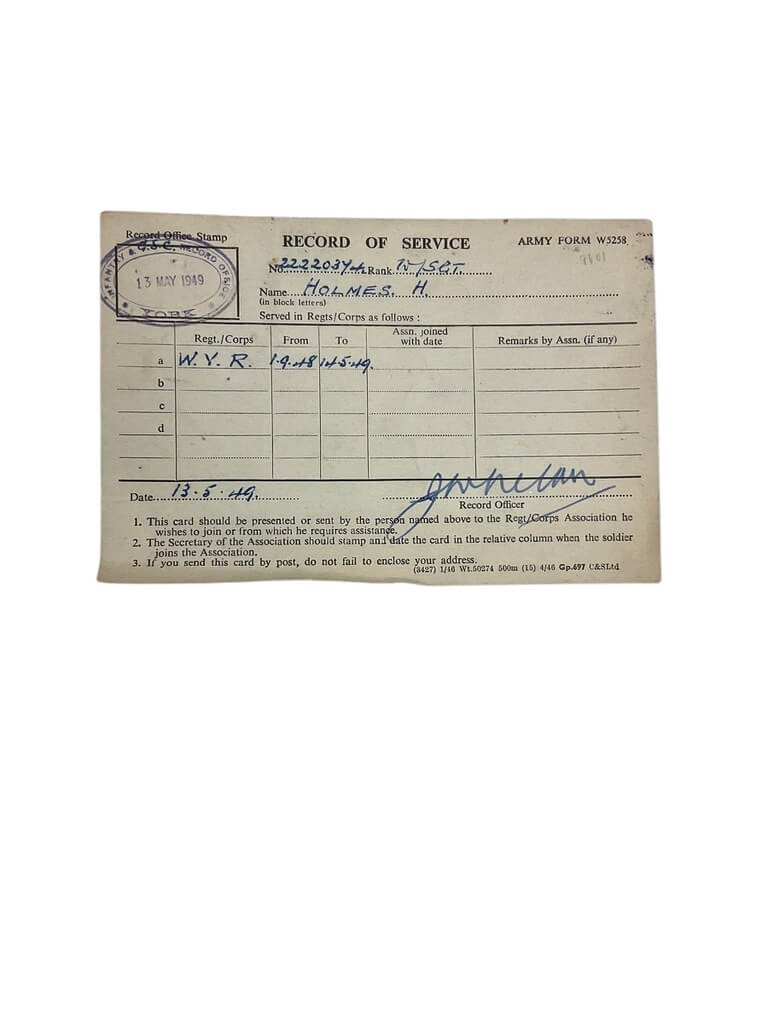 Record Office Stamp
G.S.C.
INFANTRY & RECORD OFFICE
13 MAY 1949
YORK
RECORD OF SERVICE
ARMY FORM W5258
No. Rank W/SGT.
Name HOLMES. H.
(in block letters)
Served in Regts/Corps as follows :
Regt./Corps From To Assn. joined with date Remarks by Assn. (if any)
a W. Y. R. 1.9.48 14.5.49.
b
c
d
Date 13.5.49.
Record Officer
1. This card should be presented or sent by the person named above to the Regt/Corps Association he
wishes to join or from which he requires assistance.
2. The Secretary of the Association should stamp and date the card in the relative column when the soldier
joins the Association.
3. If you send this card by post, do not fail to enclose your address.
(3427) 1/46 Wt.50274 500m (15) 4/46 Gp.697 C&SLtd